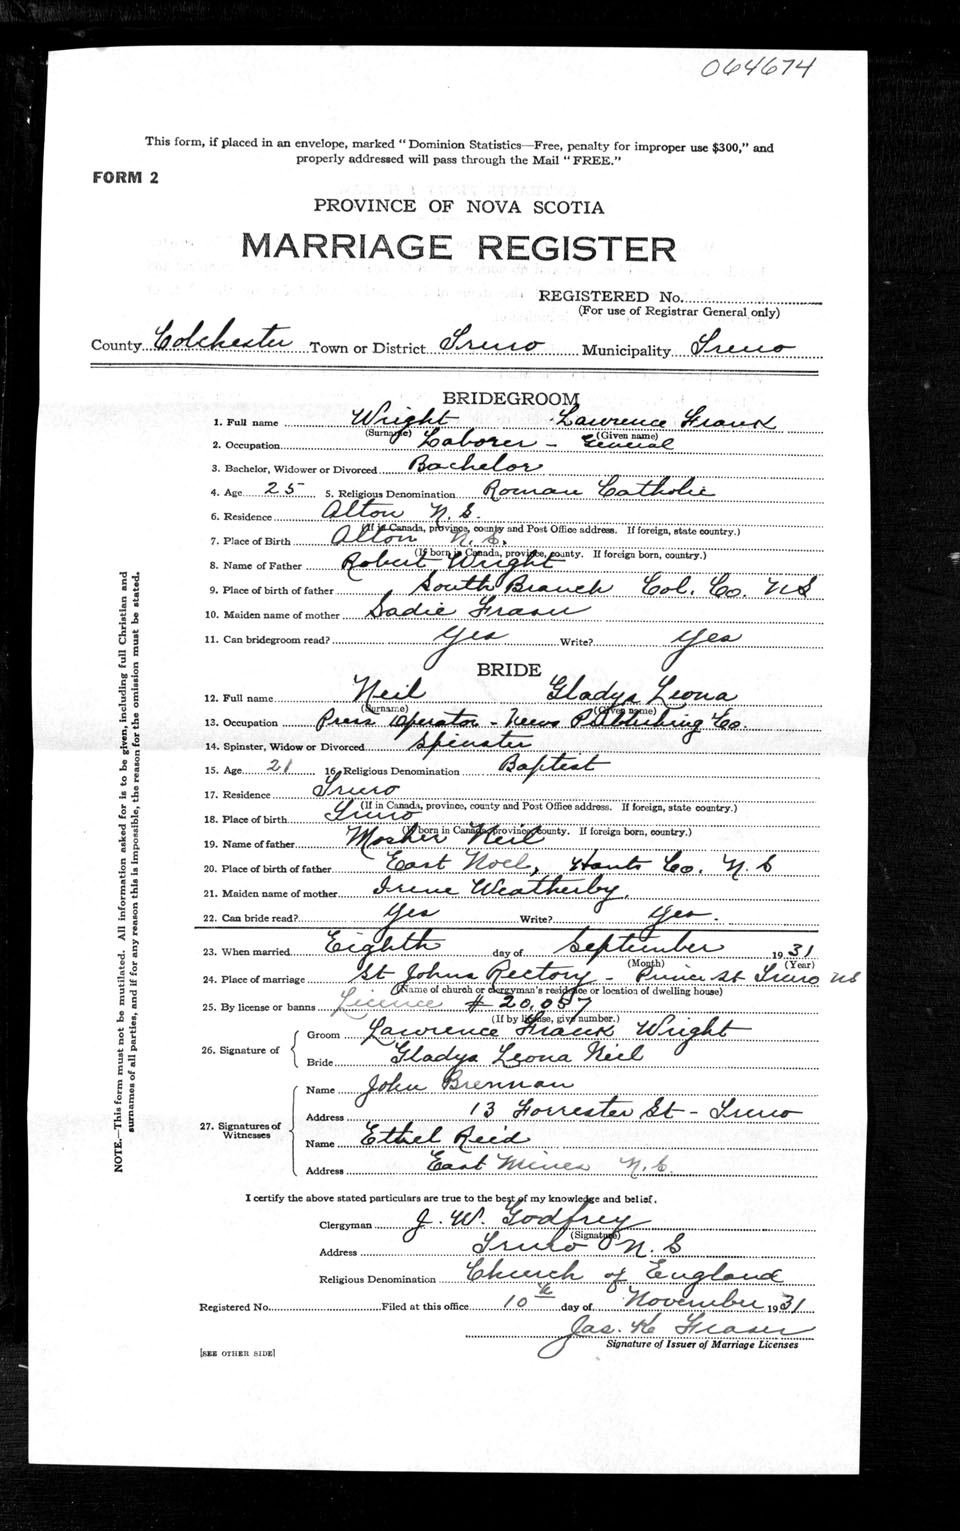 064674
This form, if placed in an envelope, marked "Dominion Statistics—Free, penalty for improper use $300," and
properly addressed will pass through the Mail "FREE."
FORM 2
PROVINCE OF NOVA SCOTIA
MARRIAGE REGISTER
REGISTERED No.
(For use of Registrar General only)
County Colchester Town or District Truro Municipality Truro
BRIDEGROOM
1. Full name Wright Lawrence Frank
(Surname) (Given name)
2. Occupation Laborer - General
3. Bachelor, Widower or Divorced Bachelor
4. Age 25 5. Religious Denomination Roman Catholic
6. Residence Alton N.S.
(If in Canada, province, county and Post Office address. If foreign, state country.)
7. Place of Birth Alton N.S.
(If born in Canada, province, county. If foreign born, country.)
8. Name of Father Robert Wright
9. Place of birth of father South Branch Col. Co. NS
10. Maiden name of mother Sadie Fraser
11. Can bridegroom read? Yes Write? Yes
BRIDE
12. Full name Neil Gladys Leona
(Surname) (Given name)
13. Occupation Press Operator - News Publishing Co
14. Spinster, Widow or Divorced Spinster
15. Age 21 16. Religious Denomination Baptist
17. Residence Truro
(If in Canada, province, county and Post Office address. If foreign, state country.)
18. Place of birth Truro
(If born in Canada, province, county. If foreign born, country.)
19. Name of father Mosher Neil
20. Place of birth of father East Noel, Hants Co. N.S
21. Maiden name of mother Irene Weatherby.
22. Can bride read? Yes Write? Yes.
23. When married Eighth day of September 1931
(Month) (Year)
24. Place of marriage St Johns Rectory - Prince St Truro NS
(Name of church or clergyman's residence or location of dwelling house)
25. By license or banns Licence # 20,057
(If by license, give number.)
26. Signature of Groom Lawrence Frank Wright
Bride Gladys Leona Neil
27. Signatures of Witnesses
Name John Brennan
Address 13 Forrester St - Truro
Name Ethel Reid
Address East Mines N.S.
I certify the above stated particulars are true to the best of my knowledge and belief.
Clergyman J. W. Godfrey
(Signature)
Address Truro N.S
Religious Denomination Church of England
Registered No. Filed at this office 10th day of November 1931
Jas. K Fraser
Signature of Issuer of Marriage Licenses
[SEE OTHER SIDE]
NOTE.—This form must not be mutilated. All information asked for is to be given, including full Christian and
surnames of all parties, and if for any reason this is impossible, the reason for the omission must be stated.